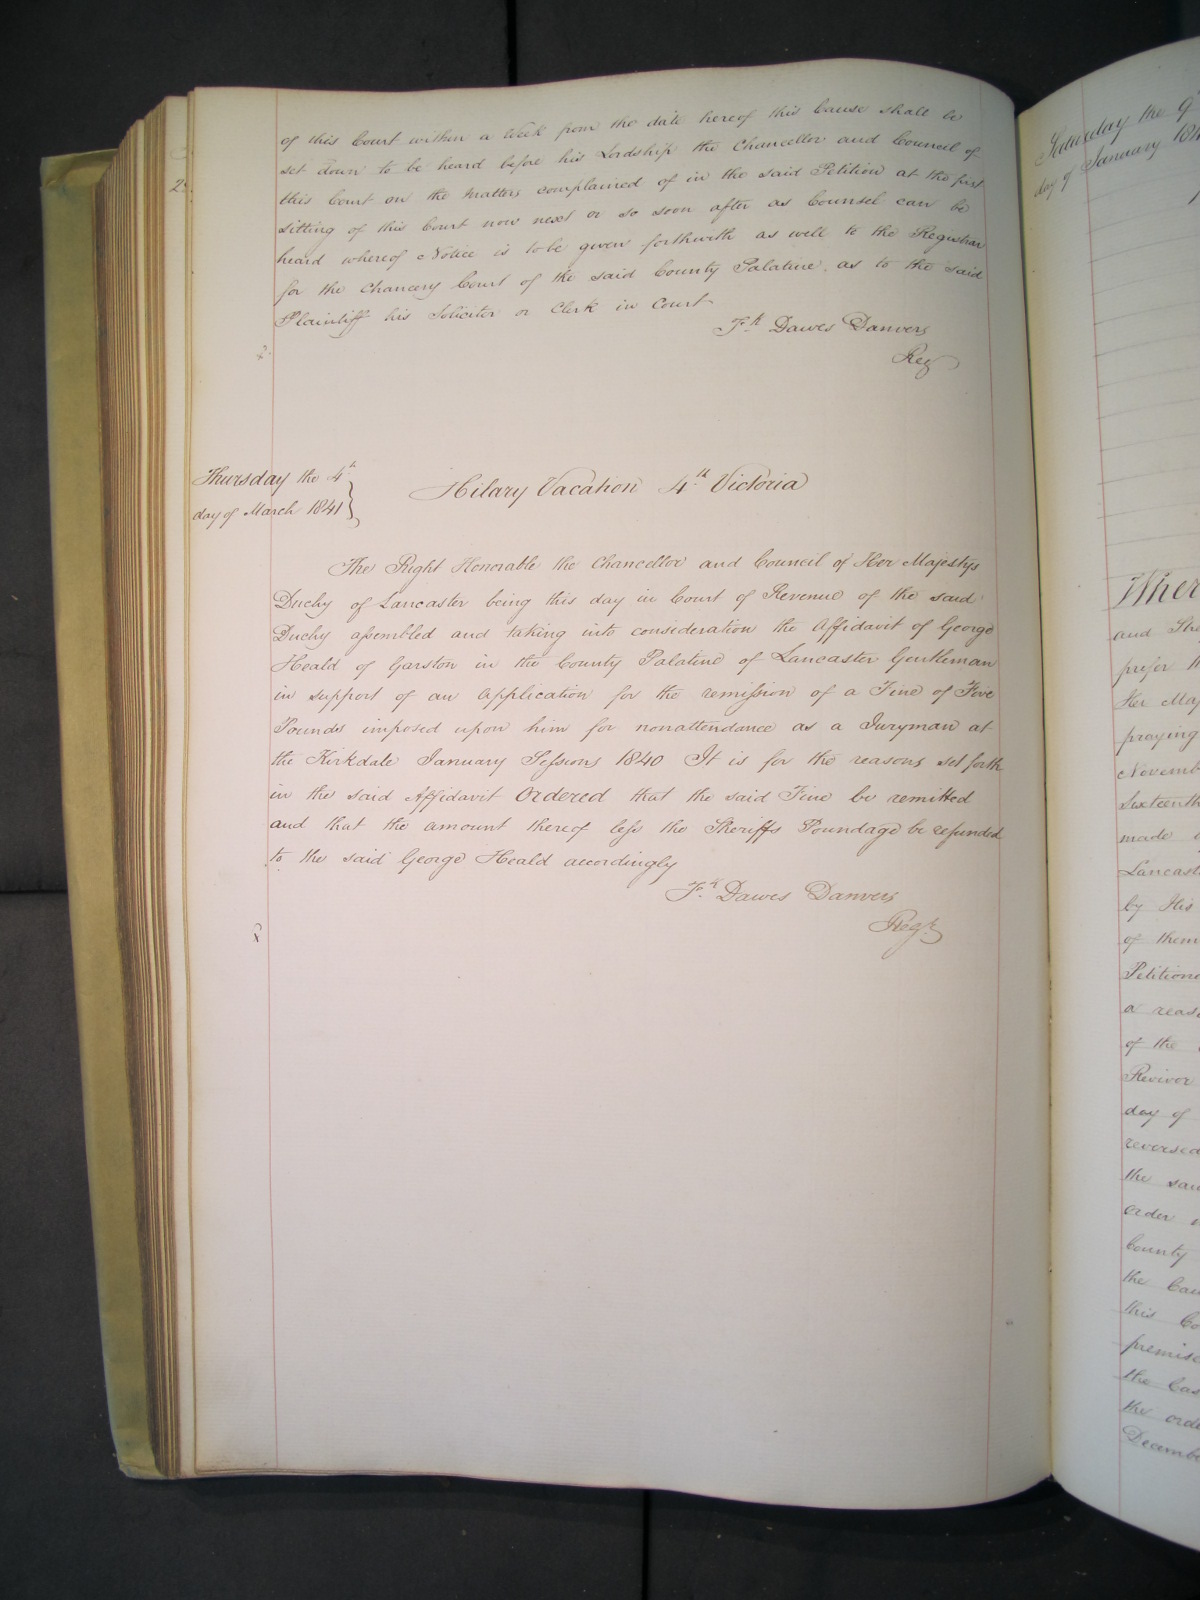 of this Court within a Week from the date hereof this Cause shall be
set down to be heard before his Lordship the Chancellor and Council of
this Court on the Matters complained of in the said Petition at the first
sitting of this Court now next or so soon after as Counsel can be
heard whereof Notice is to be given forthwith as well to the Registrar
for the Chancery Court of the said County Palatine as to the said
Plaintiff his Solicitor or Clerk in Court
Fk Dawes Danvers
Reg
Thursday the 4th
day of March 1841
Hilary Vacation 4th Victoria
The Right Honorable the Chancellor and Council of Her Majestys
Duchy of Lancaster being this day in Court of Revenue of the said
Duchy assembled and taking into consideration the Affidavit of George
Heald of Garston in the County Palatine of Lancaster Gentleman
in support of an Application for the remission of a Fine of Five
Pounds imposed upon him for nonattendance as a Juryman at
the Kirkdale January Sessions 1840 It is for the reasons set forth
in the said Affidavit Ordered that the said Fine be remitted
and that the amount thereof less the Sheriffs Poundage be refunded
to the said George Heald accordingly
Fk Dawes Danvers
Regr
Saturday the 9
day of January 184
Wher
and
prefer
Her Maj
praying
Novemb
Sixteenth
made
Lancast
by His
of them
Petition
a reas
of the
Revivor
day of
reversed
the
order
County
the Cau
this Co
premise
the Cas
the orde
Decembe